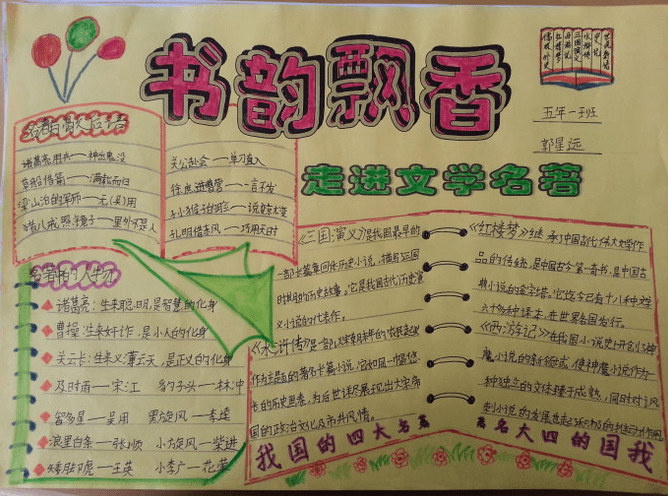 书韵飘香
走进文学名著
五年一班
郭星远
名著歇后语
诸葛亮用兵——神出鬼没
草船借箭——满载而归
梁山泊的军师——无(吴)用
猪八戒照镜子——里外不是人
关公赴会——单刀直入
徐庶进曹营——一言不发
孙猴子的脸——说变就变
孔明借东风——巧用天时
名著中的人物
诸葛亮:生来聪明,是智慧的化身
曹操:生来奸诈,是小人的化身
关云长:生来义薄云天,是正义的化身
及时雨——宋江 豹子头——林冲
智多星——吴用 黑旋风——李逵
浪里白条——张顺 小旋风——柴进
矮脚虎——王英 小李广——花荣
《三国演义》是我国最早的
一部长篇章回体历史小说,描写三国
时期的历史故事。它是我国古代历史演
义小说的代表作。
《水浒传》是一部以描写
作为主题的著名长篇小说,它如同一幅悠
长的历史画卷,为后世详尽展现出大宋帝
国的政治文化及市井风情。
我国的四大名著
《红楼梦》继承了中国古代伟大文学作
品的传统,是中国古今第一奇书,是中国古
典小说的金字塔。它迄今已有十八种文字
六十多种译本,在世界各国发行。
《西游记》在我国小说史上开创了
魔小说的新领域,使神魔小说作为
一种独立的文体臻于成熟,同时对讽
刺小说的发展也起了积极的
著名大四的国我